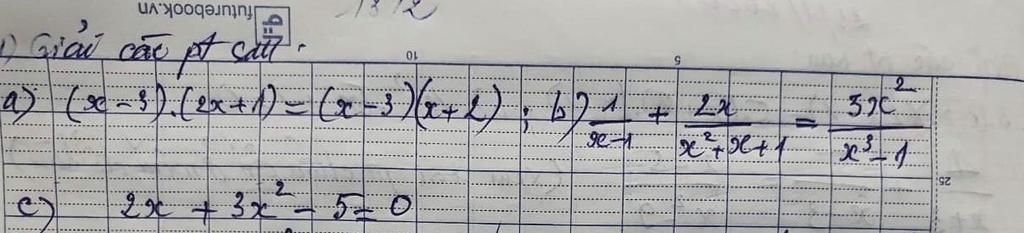 futurebook.vn
1) Giải các pt sau.
10
5
a) (x-3).(2x+1) = (x-3)(x+2) ; b) 1/(x-1) + 2x/(x²+x+1) = 3x²/(x³-1)
25
c) 2x + 3x² - 5 = 0